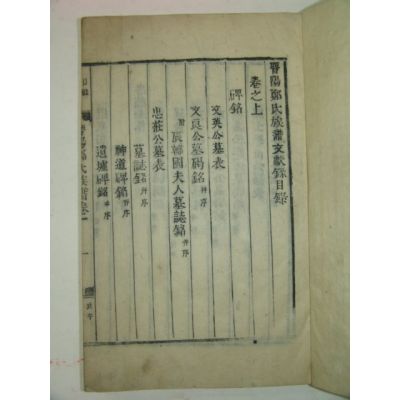 晉陽鄭氏族譜文獻錄目錄
卷之上
碑銘
文英公墓表
文良公墓碣銘 幷序
附 辰韓國夫人墓誌銘 幷序
忠莊公墓表
墓誌銘 幷序
神道碑銘 幷序
遺墟碑銘 幷序